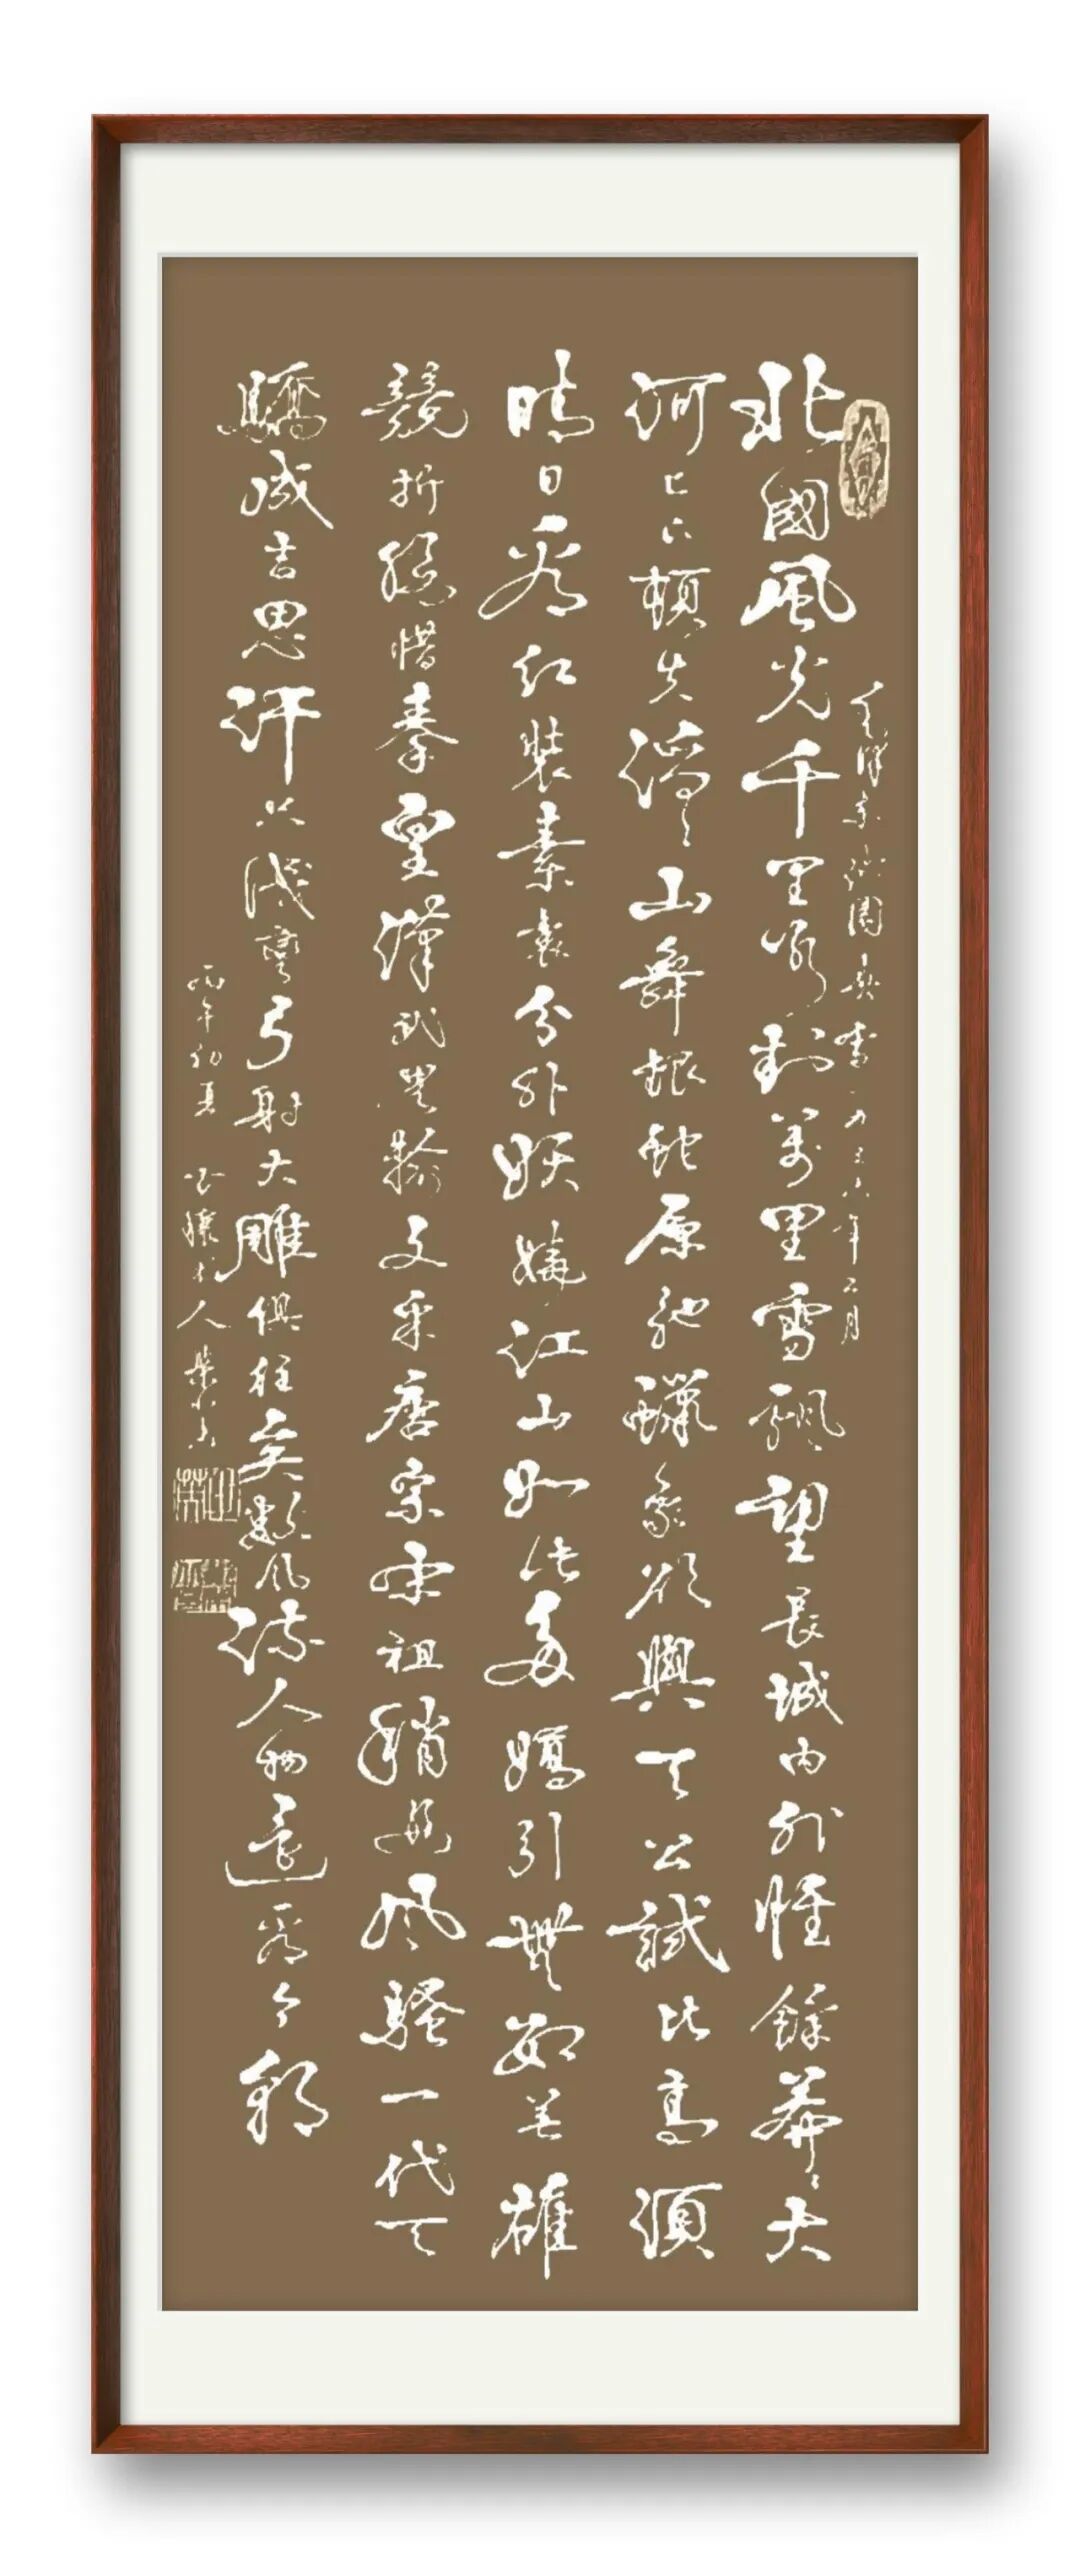 毛澤東沁園春雪一九三六年二月
北國風光千里冰封萬里雪飄望長城內外惟餘莽〻大
河上下頓失滔〻山舞銀蛇原馳蠟象欲與天公試比高須
晴日看紅裝素裹分外妖嬈江山如此多嬌引無數英雄
競折腰惜秦皇漢武略輸文采唐宗宋祖稍遜風騷一代天
驕成吉思汗只識彎弓射大雕俱往矣數風流人物還看今朝
丙午初夏